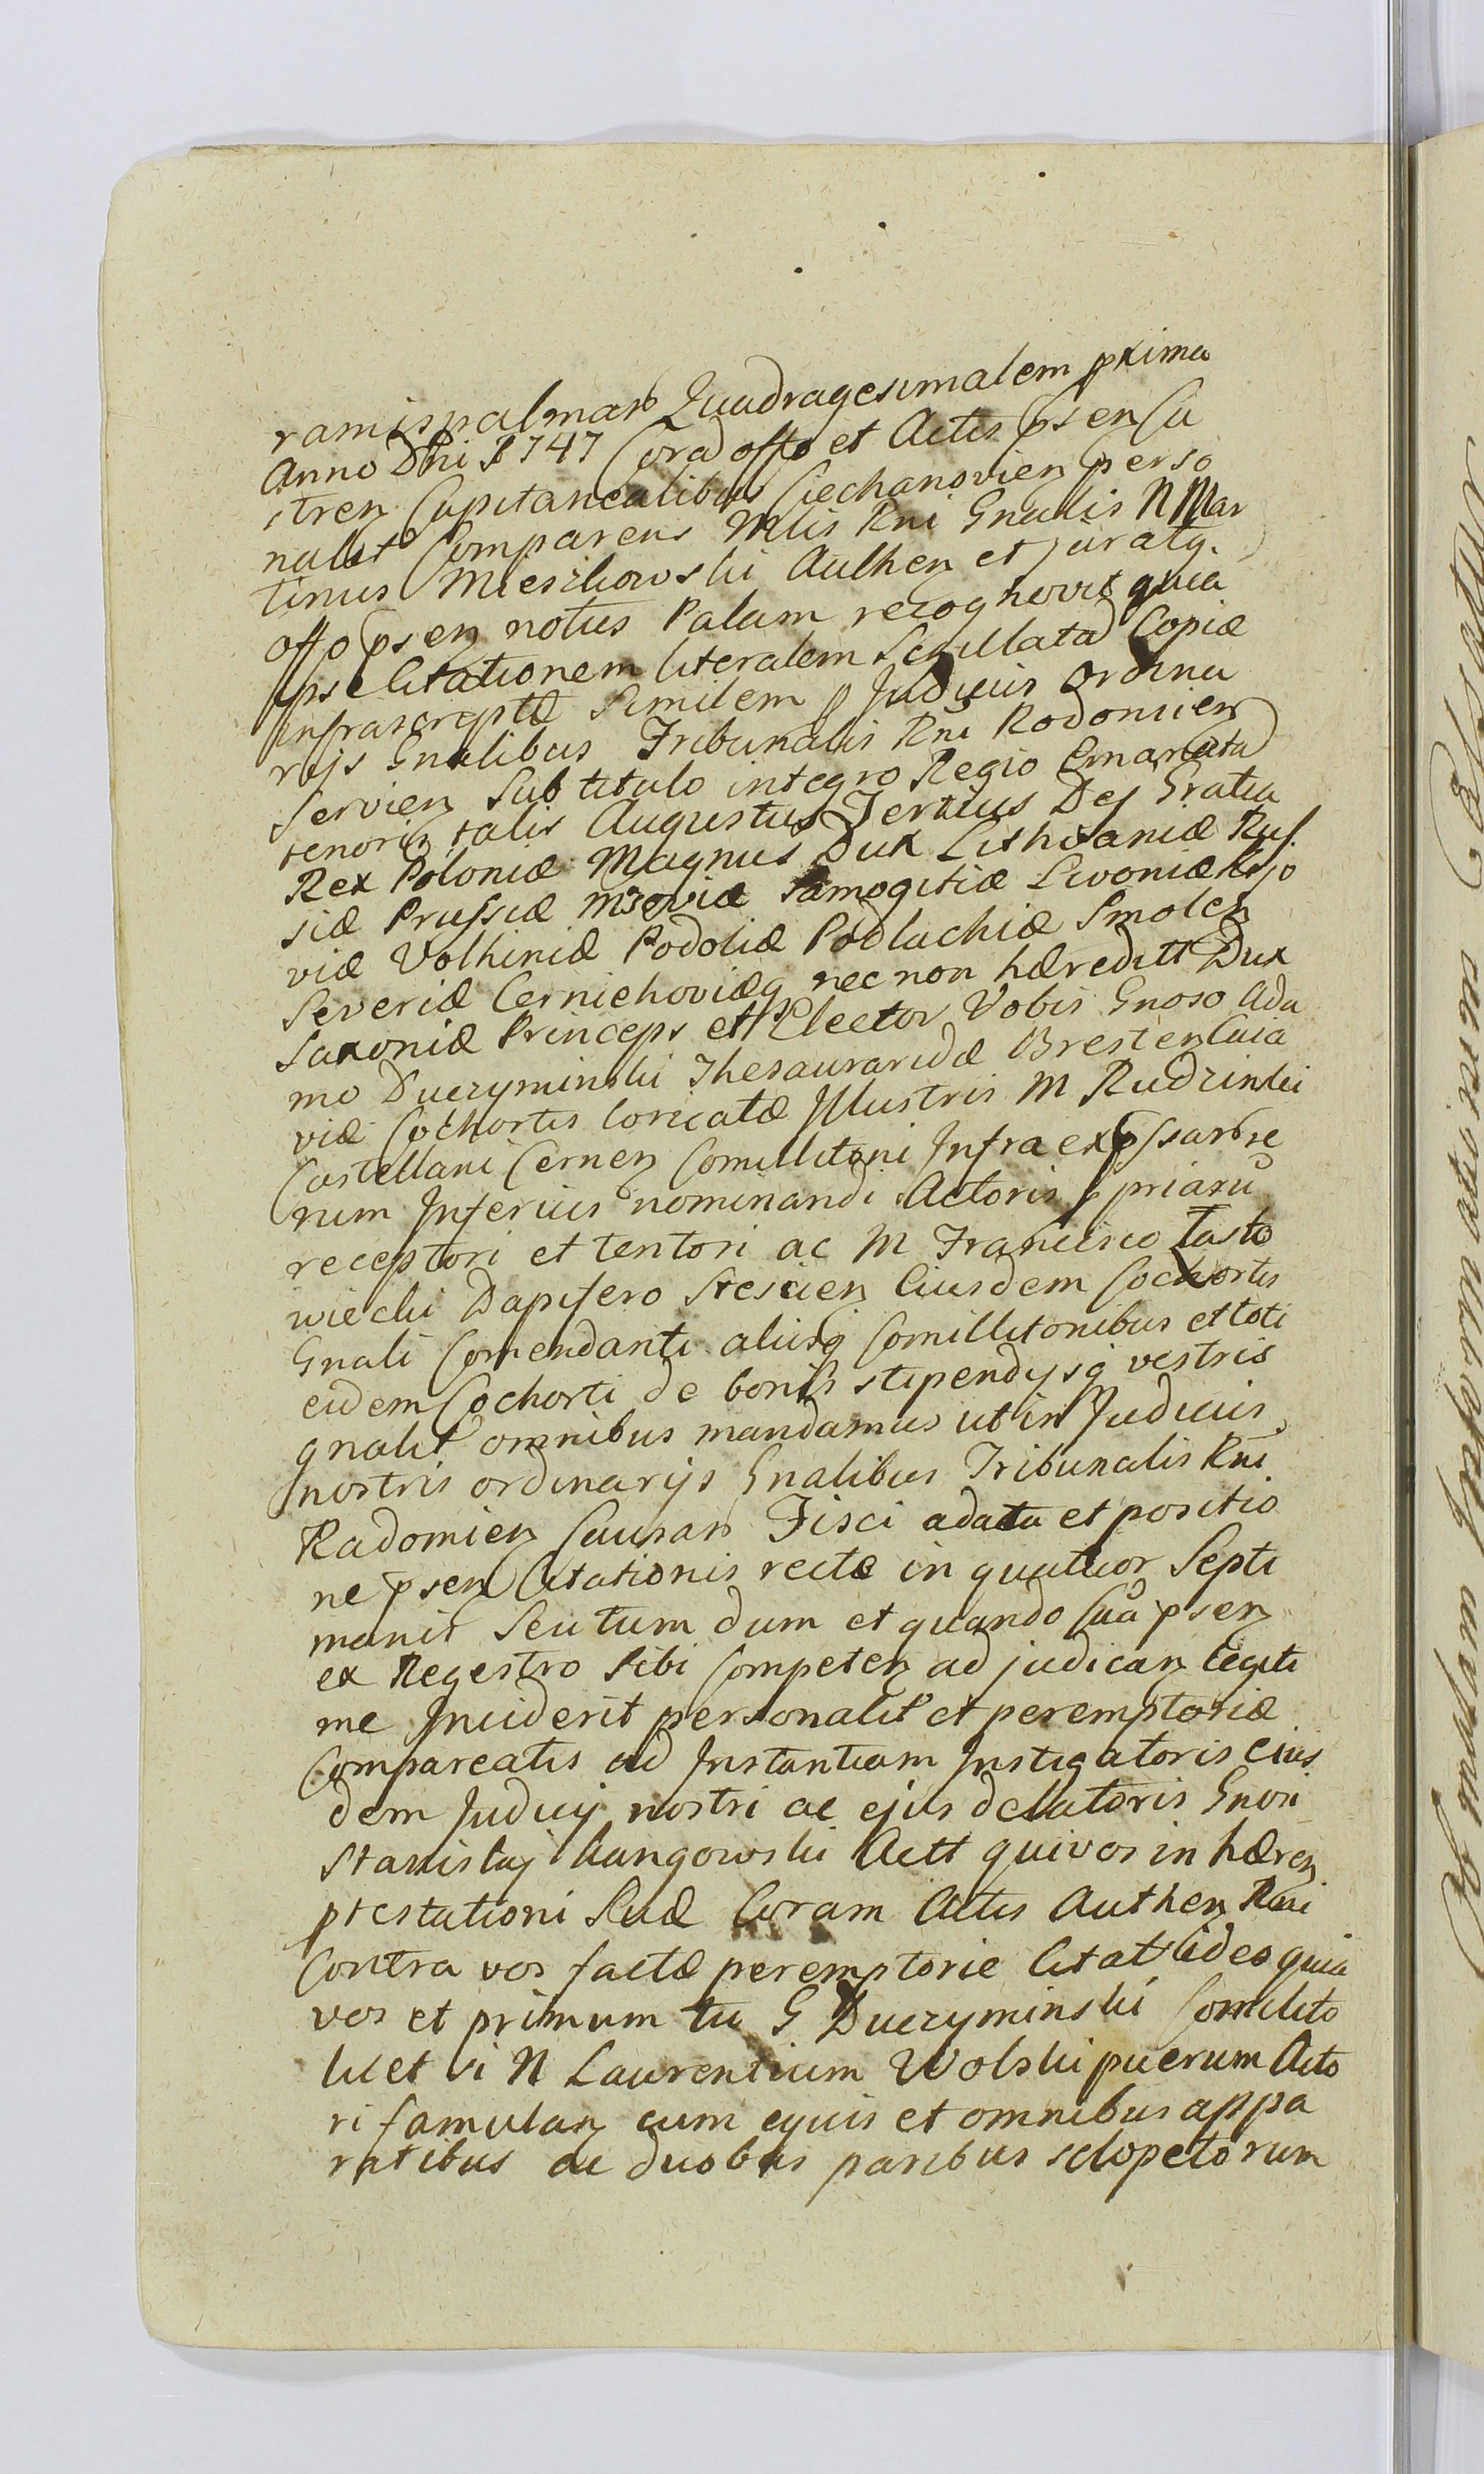 ramispalmar Quadragesimalem pxima
Anno Dni 1747 Corad offo et Actis psen Ca
stren Capitanealibus Ciechanovien perso
nalit Comparens Mlis Rni Gnalis N Mar
tinus Mieszkowski Authen et juratq.
offo psen notus Palam recognovit quia
ipse Citationem literalem Sigillata Copiæ
infrascriptæ Similem p Judicijs Ordina
rijs Gnalibus Tribunalis Rni Rodomien
Servien Sub titulo integro Regio Emanata
tenoris talis Augustus Tertius Dej Gratia
Rex Poloniæ Magnus Dux Lithvaniæ Rus
siæ Prussiæ Mzoviæ Samogitiæ Livoniæ Kijo
viæ Volhiniæ Podoliæ Podlachiæ Smolen
Severiæ Cerniehoviæq nec non hæreditt Dux
Saxoniæ Princeps et Elector Vobis Gnoso Ada
mo Duczyminski Thesauraridæ Bresten Cuia
viæ Cochortis loricatæ Illustris M Rudzinski
Castellani Cernen Comillitoni Infra
rum Inferius nominandi Actoris
receptori et tentori ac M Francisco Lasto
wiecki Dapifero Eiusdem Cochortis
Gnali Comendanti aliisq Comillitonibus et toti
eidem Cochorti de bonis stipendysq vestris
gnalit omnibus mandamus ut in Judicijs
nostris ordinarijs Gnalibus Tribunalis Rni
Radomien Causar Fisci adacta et positio
ne psen Citationis recte in quatuor Septi
manis Seu tum dum et quando Cua psen
ex Regestro Sibi Competen ad judican legiti
me Inciderit personalit et peremptoriæ
Compareatis ad Instantiam Instigatoris eius
dem Judicij nostri ac ejus delatoris Gnosi
Stanislaj Actt qui vos in hæren
ptestationi Suæ Coram Actis Authen Rni
Contra vos factæ peremptorie Citat ideo quia
vos et primum tu G Duczyminski Comilito
licet vi N Laurentium Wolski puerum Acto
ri famulan cum equis et omnibus appa
ratibus ac duobus paribus sclopetorum